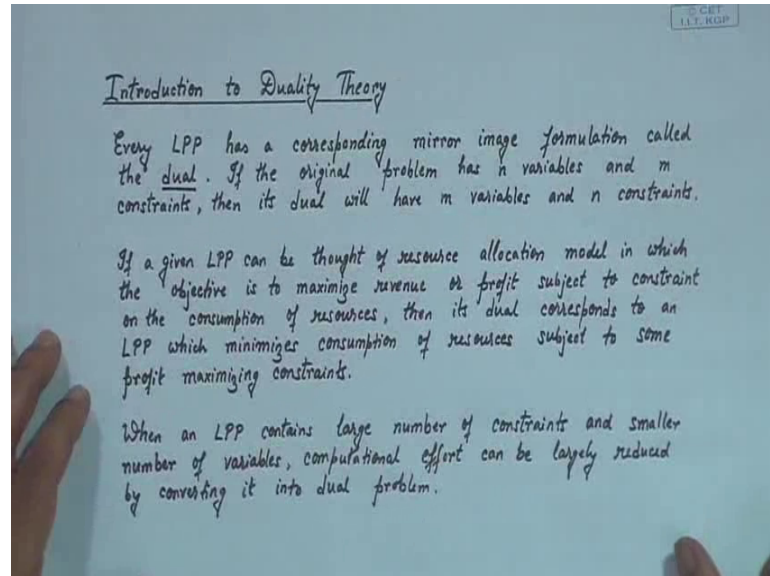 © CET
I.I.T. KGP
Introduction to Duality Theory
Every LPP has a corresponding mirror image formulation called
the dual. If the original problem has n variables and m
constraints, then its dual will have m variables and n constraints.
If a given LPP can be thought of resource allocation model in which
the objective is to maximize revenue or profit subject to constraint
on the consumption of resources, then its dual corresponds to an
LPP which minimizes consumption of resources subject to some
profit maximizing constraints.
When an LPP contains large number of constraints and smaller
number of variables, computational effort can be largely reduced
by converting it into dual problem.